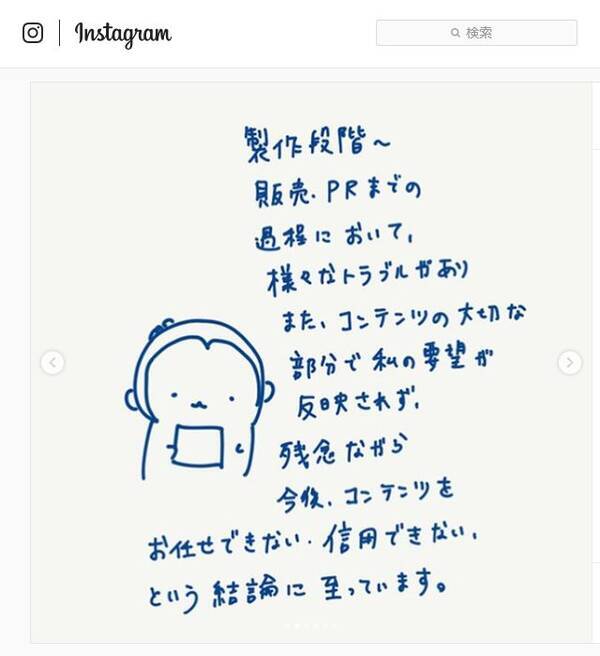 Instagram
検索
製作段階～
販売、PRまでの
過程において、
様々なトラブルがあり
また、コンテンツの大切な
部分で私の要望が
反映されず、
残念ながら
今後、コンテンツを
お任せできない・信用できない、
という結論に至っています。